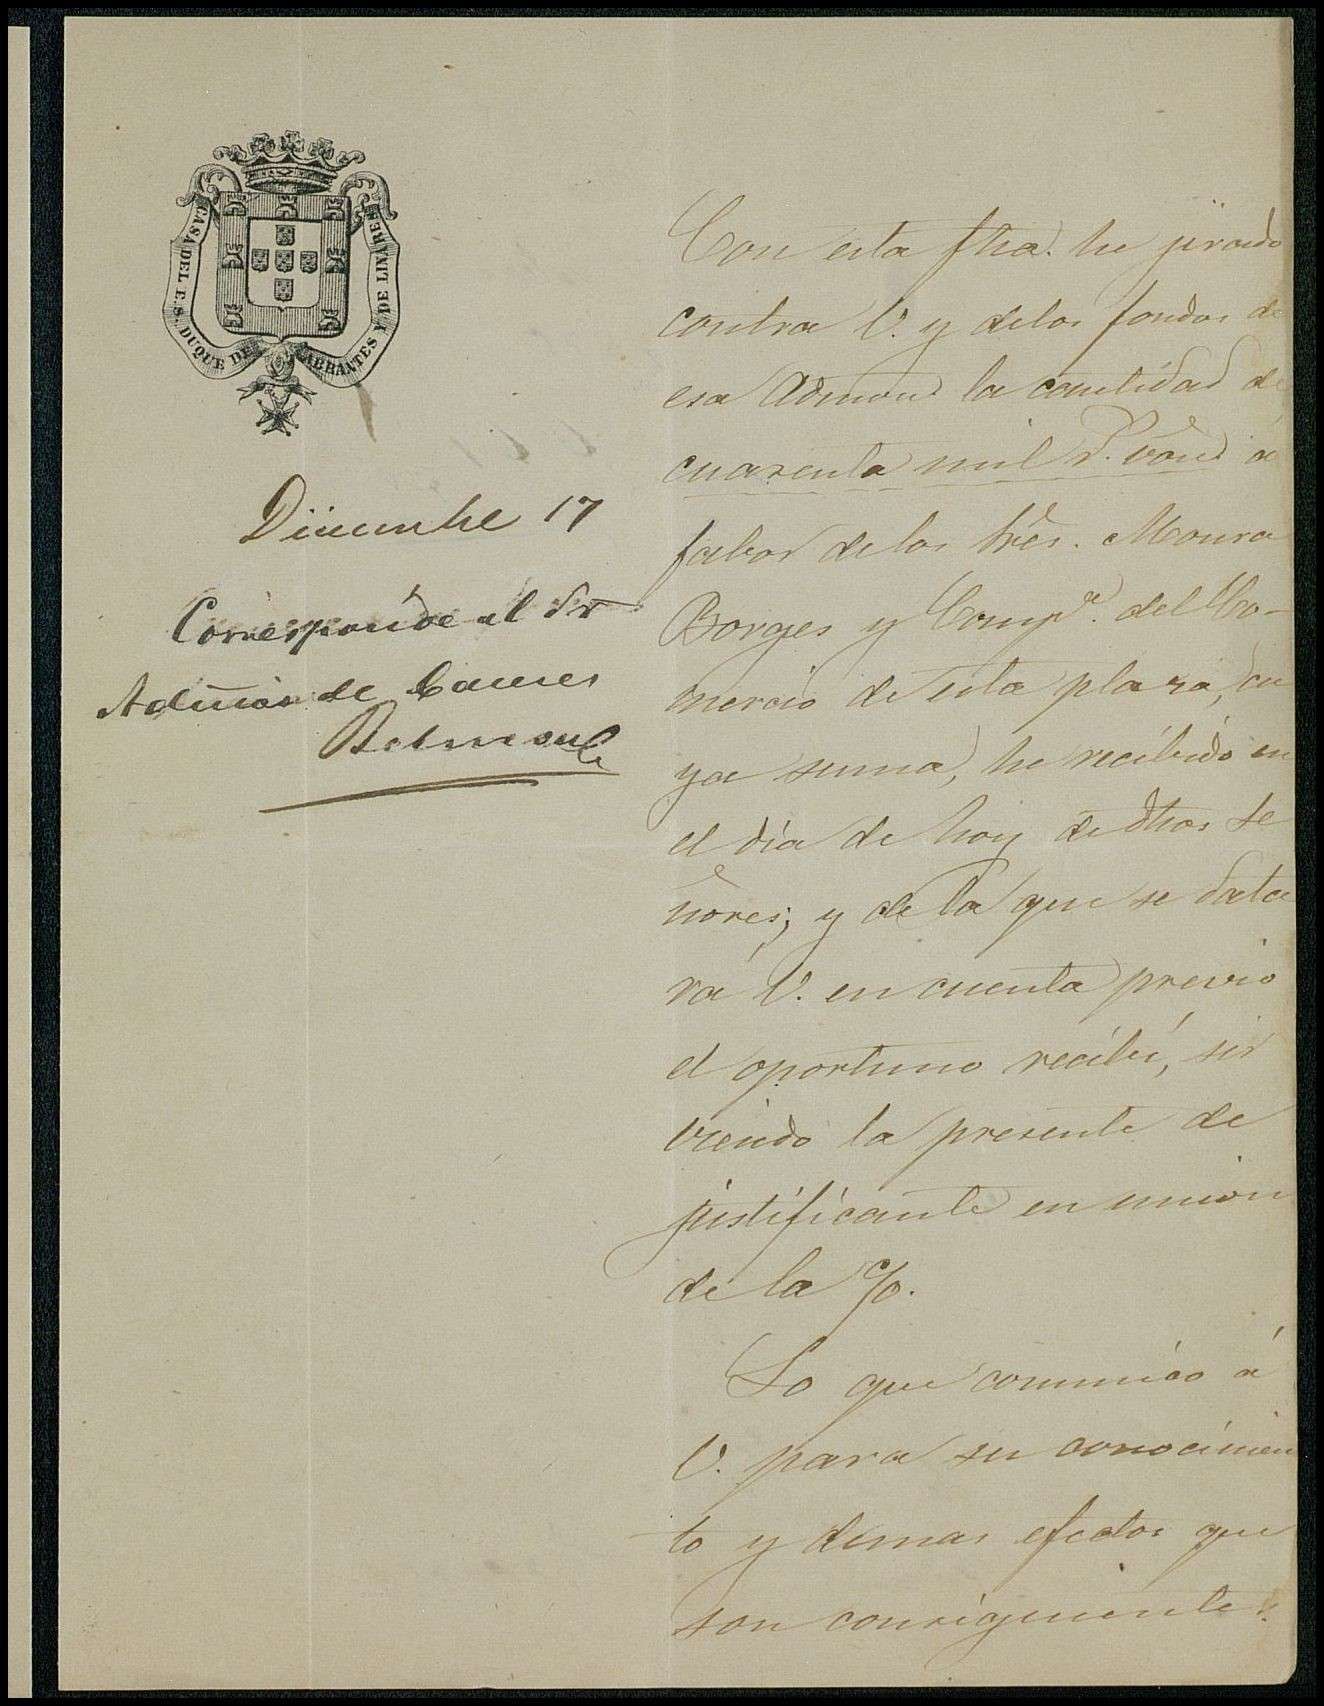 CASA DEL E.S. DUQUE DE ABRANTES Y DE LINARES
Diciembre 17
Corresponde al Sr
Admor de Caceres
Con esta fha. he jirado
contra V. y delos fondos de
esa Admon la cantidad de
cuarenta mil r.s von á
fabor de los Sres. Moura
Borges y Comp.a del Co-
mercio de esta plaza, cu
ya suma, he recibido en
el dia de hoy de dhos Se
ñores; y de la que se data
rá V. en cuenta previo
el oportuno recibí, sir
viendo la presente de
justificante en union
de la %.
Lo que comunico á
V. para su conocimien
to y demas efectos que
son consiguientes.